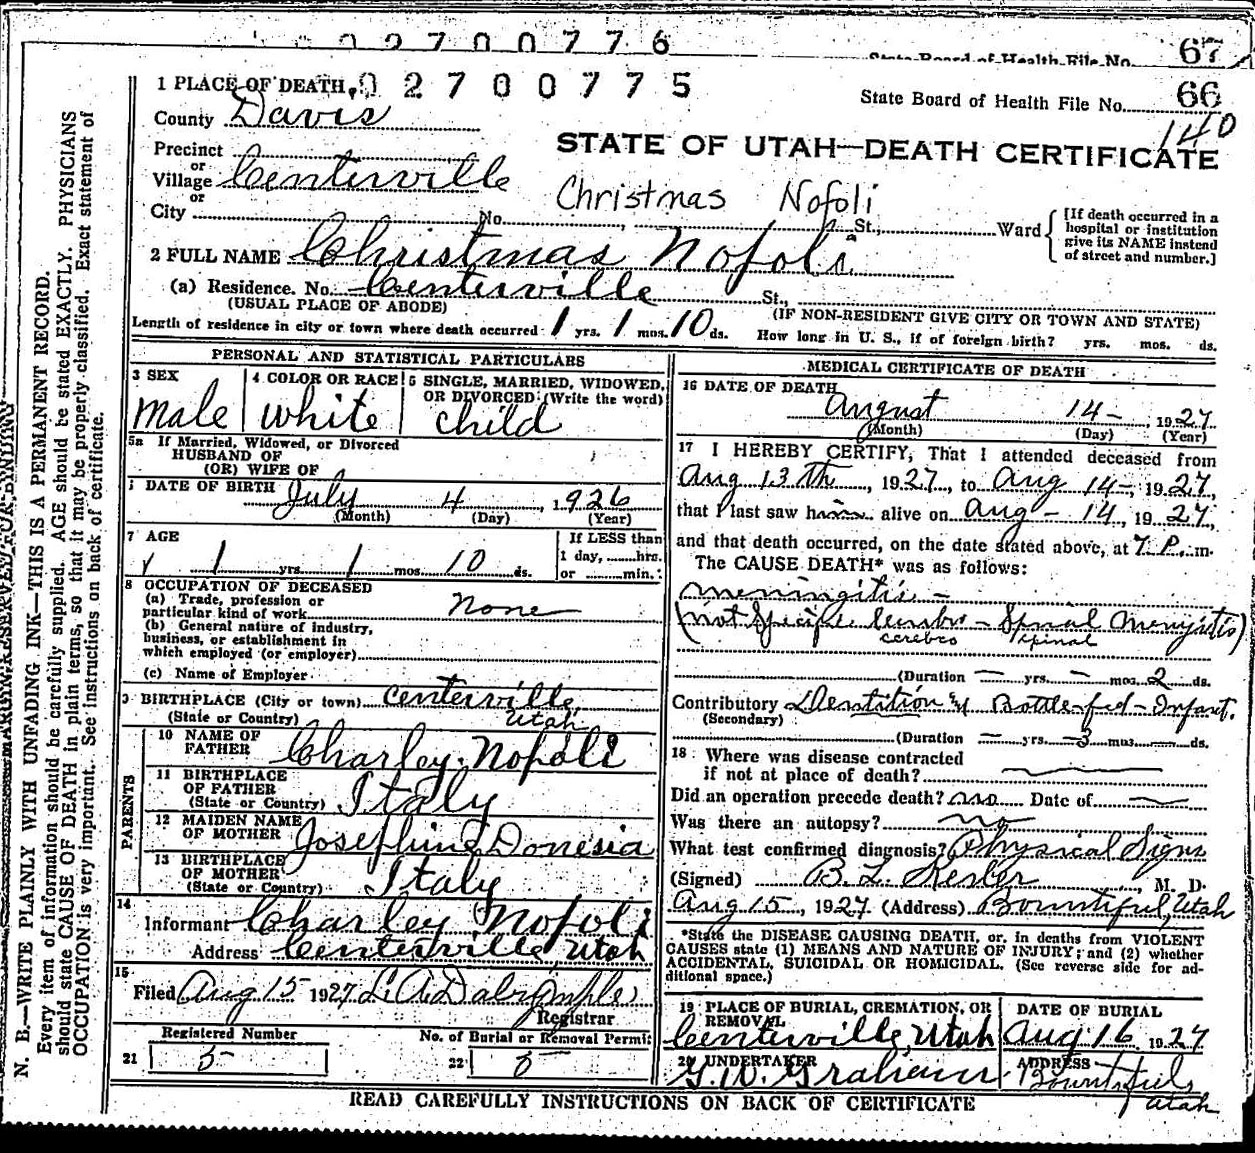 02700776
State Board of Health File No. 67
1 PLACE OF DEATH 02700775
State Board of Health File No. 66
140
County Davis
STATE OF UTAH—DEATH CERTIFICATE
Precinct
or
Village Centerville
or
Christmas Nofoli
City No. St., Ward
[If death occurred in a
hospital or institution
give its NAME instead
of street and number.]
2 FULL NAME Christmas Nofoli
(a) Residence. No. Centerville St.,
(USUAL PLACE OF ABODE) (IF NON-RESIDENT GIVE CITY OR TOWN AND STATE)
Length of residence in city or town where death occurred 1 yrs. 1 mos. 10 ds. How long in U. S., if of foreign birth? yrs. mos. ds.
PERSONAL AND STATISTICAL PARTICULARS
3 SEX 4 COLOR OR RACE 5 SINGLE, MARRIED, WIDOWED,
OR DIVORCED (Write the word)
male white child
5a If Married, Widowed, or Divorced
HUSBAND OF
(OR) WIFE OF
DATE OF BIRTH July 4, 1926
(Month) (Day) (Year)
7 AGE If LESS than
1 yrs. 1 mos. 10 ds. 1 day, hrs.
or min.
8 OCCUPATION OF DECEASED
(a) Trade, profession or
particular kind of work none
(b) General nature of industry,
business, or establishment in
which employed (or employer)
(c) Name of Employer
9 BIRTHPLACE (City or town) Centerville,
(State or Country) Utah
PARENTS
10 NAME OF
FATHER Charley Nofoli
11 BIRTHPLACE
OF FATHER
(State or Country) Italy
12 MAIDEN NAME
OF MOTHER Josephine Donesia
13 BIRTHPLACE
OF MOTHER
(State or Country) Italy
14
Informant Charley Nofoli
Address Centerville, Utah
15
Filed Aug 15 1927 L. A. Dalrymple
Registrar
Registered Number No. of Burial or Removal Permit
21 5 22 5
MEDICAL CERTIFICATE OF DEATH
16 DATE OF DEATH
August 14- 1927
(Month) (Day) (Year)
17 I HEREBY CERTIFY, That I attended deceased from
Aug 13th, 1927, to Aug 14-, 1927,
that I last saw him alive on Aug - 14, 1927,
and that death occurred, on the date stated above, at 7 P. m.
The CAUSE DEATH* was as follows:
meningitis -
(not Specific Cerebro - Spinal Meningitis)
cerebro spinal
(Duration — yrs. — mos. 2 ds.
Contributory Dentition & Bottle-fed-Infant.
(Secondary)
(Duration — yrs. 3 mos. — ds.
18 Where was disease contracted
if not at place of death?
Did an operation precede death? no Date of
Was there an autopsy? no
What test confirmed diagnosis? Physical Signs
(Signed) B. L. Kesler, M. D.
Aug 15, 1927 (Address) Bountiful, Utah
*State the DISEASE CAUSING DEATH, or, in deaths from VIOLENT
CAUSES state (1) MEANS AND NATURE OF INJURY; and (2) whether
ACCIDENTAL, SUICIDAL OR HOMICIDAL. (See reverse side for ad-
ditional space.)
19 PLACE OF BURIAL, CREMATION, OR
REMOVAL
Centerville, Utah
DATE OF BURIAL
Aug 16 1927
20 UNDERTAKER
G. W. Graham
ADDRESS
Bountiful,
Utah
READ CAREFULLY INSTRUCTIONS ON BACK OF CERTIFICATE
MARGIN RESERVED FOR BINDING
N. B.—WRITE PLAINLY WITH UNFADING INK—THIS IS A PERMANENT RECORD.
Every item of information should be carefully supplied. AGE should be stated EXACTLY. PHYSICIANS
should state CAUSE OF DEATH in plain terms, so that it may be properly classified. Exact statement of
OCCUPATION is very important. See instructions on back of certificate.